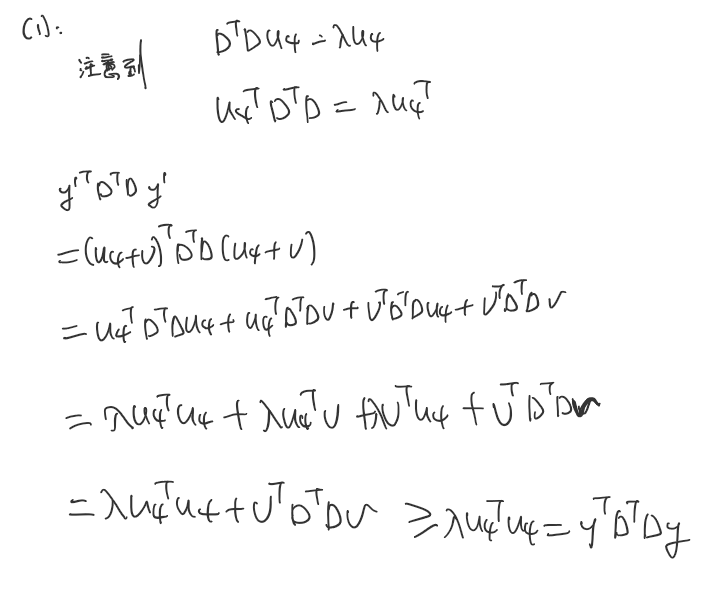 (1):
注意到 D^T D u_4 = λu_4
u_4^T D^T D = λu_4^T
y'^T D^T D y'
= (u_4+v)^T D^T D (u_4+v)
= u_4^T D^T D u_4 + u_4^T D^T D v + v^T D^T D u_4 + v^T D^T D v
= λu_4^T u_4 + λu_4^T v + λv^T u_4 + v^T D^T D v
= λu_4^T u_4 + v^T D^T D v ≥ λu_4^T u_4 = y^T D^T D y